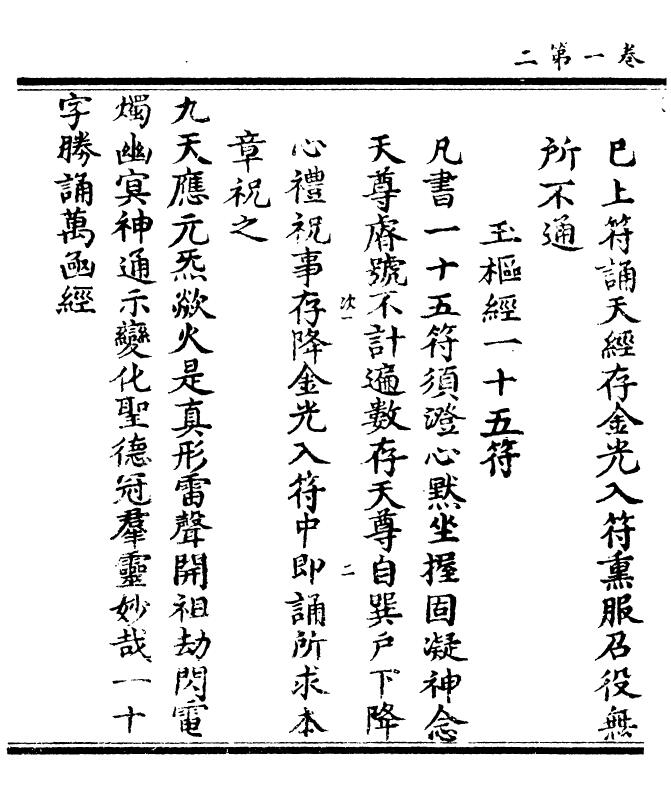 二第一卷
已上符誦天經存金光入符熏服召役無
所不通
玉樞經一十五符
凡書一十五符須澄心默坐握固凝神念
天尊睿號不計遍數存天尊自巽户下降
次一 二
心禮祝事存降金光入符中即誦所求本
章祝之
九天應元炁㷋火是真形雷聲開祖劫閃電
燭幽冥神通示變化聖德冠羣靈妙哉一十
字勝誦萬函經